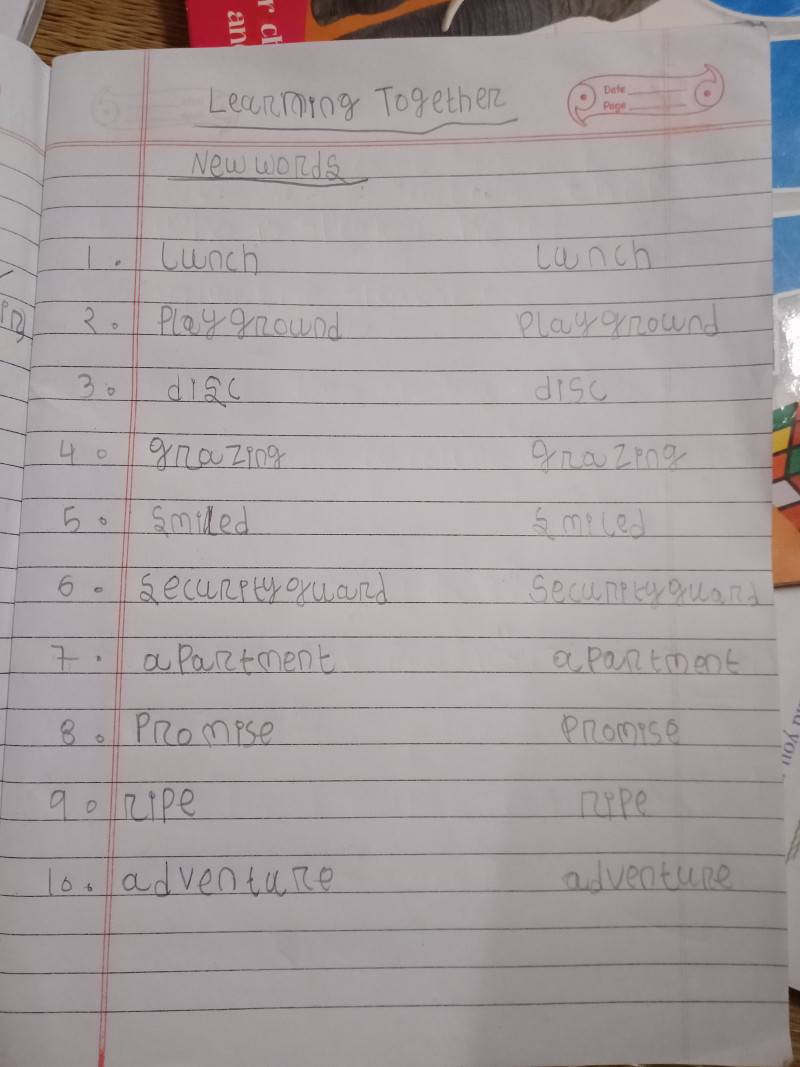 r ch
an
Learning Together
Date
Page
New words
1. Lunch Lunch
2. Playground Playground
3. disc disc
4. grazing grazing
5. Smiled Smiled
6. Securityguard Securityguard
7. apartment apartment
8. Promise Promise
9. ripe ripe
10. adventure adventure
you